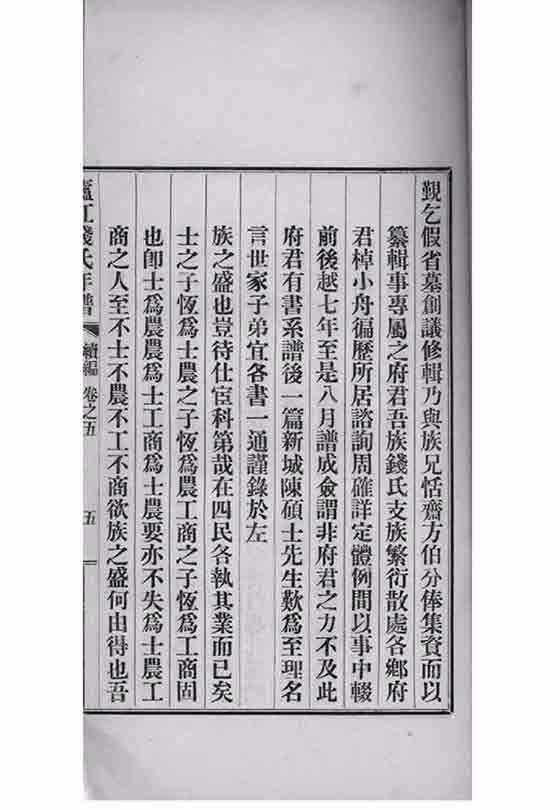 覲乞假省墓創議修輯乃與族兄恬齋方伯分俸集資而以
纂輯事專屬之府君吾族錢氏支族繁衍散處各鄉府
君棹小舟徧歷所居諮詢周確詳定體例間以事中輟
前後越七年至是八月譜成僉謂非府君之力不及此
府君有書系譜後一篇新城陳碩士先生歎為至理名
言世家子弟宜各書一通謹錄於左
族之盛也豈待仕宦科第哉在四民各執其業而已矣
士之子恆為士農之子恆為農工商之子恆為工商固
也卽士為農農為士工商為士農要亦不失為士農工
商之人至不士不農不工不商欲族之盛何由得也吾
廬江錢氏年譜 續編 卷之五 五